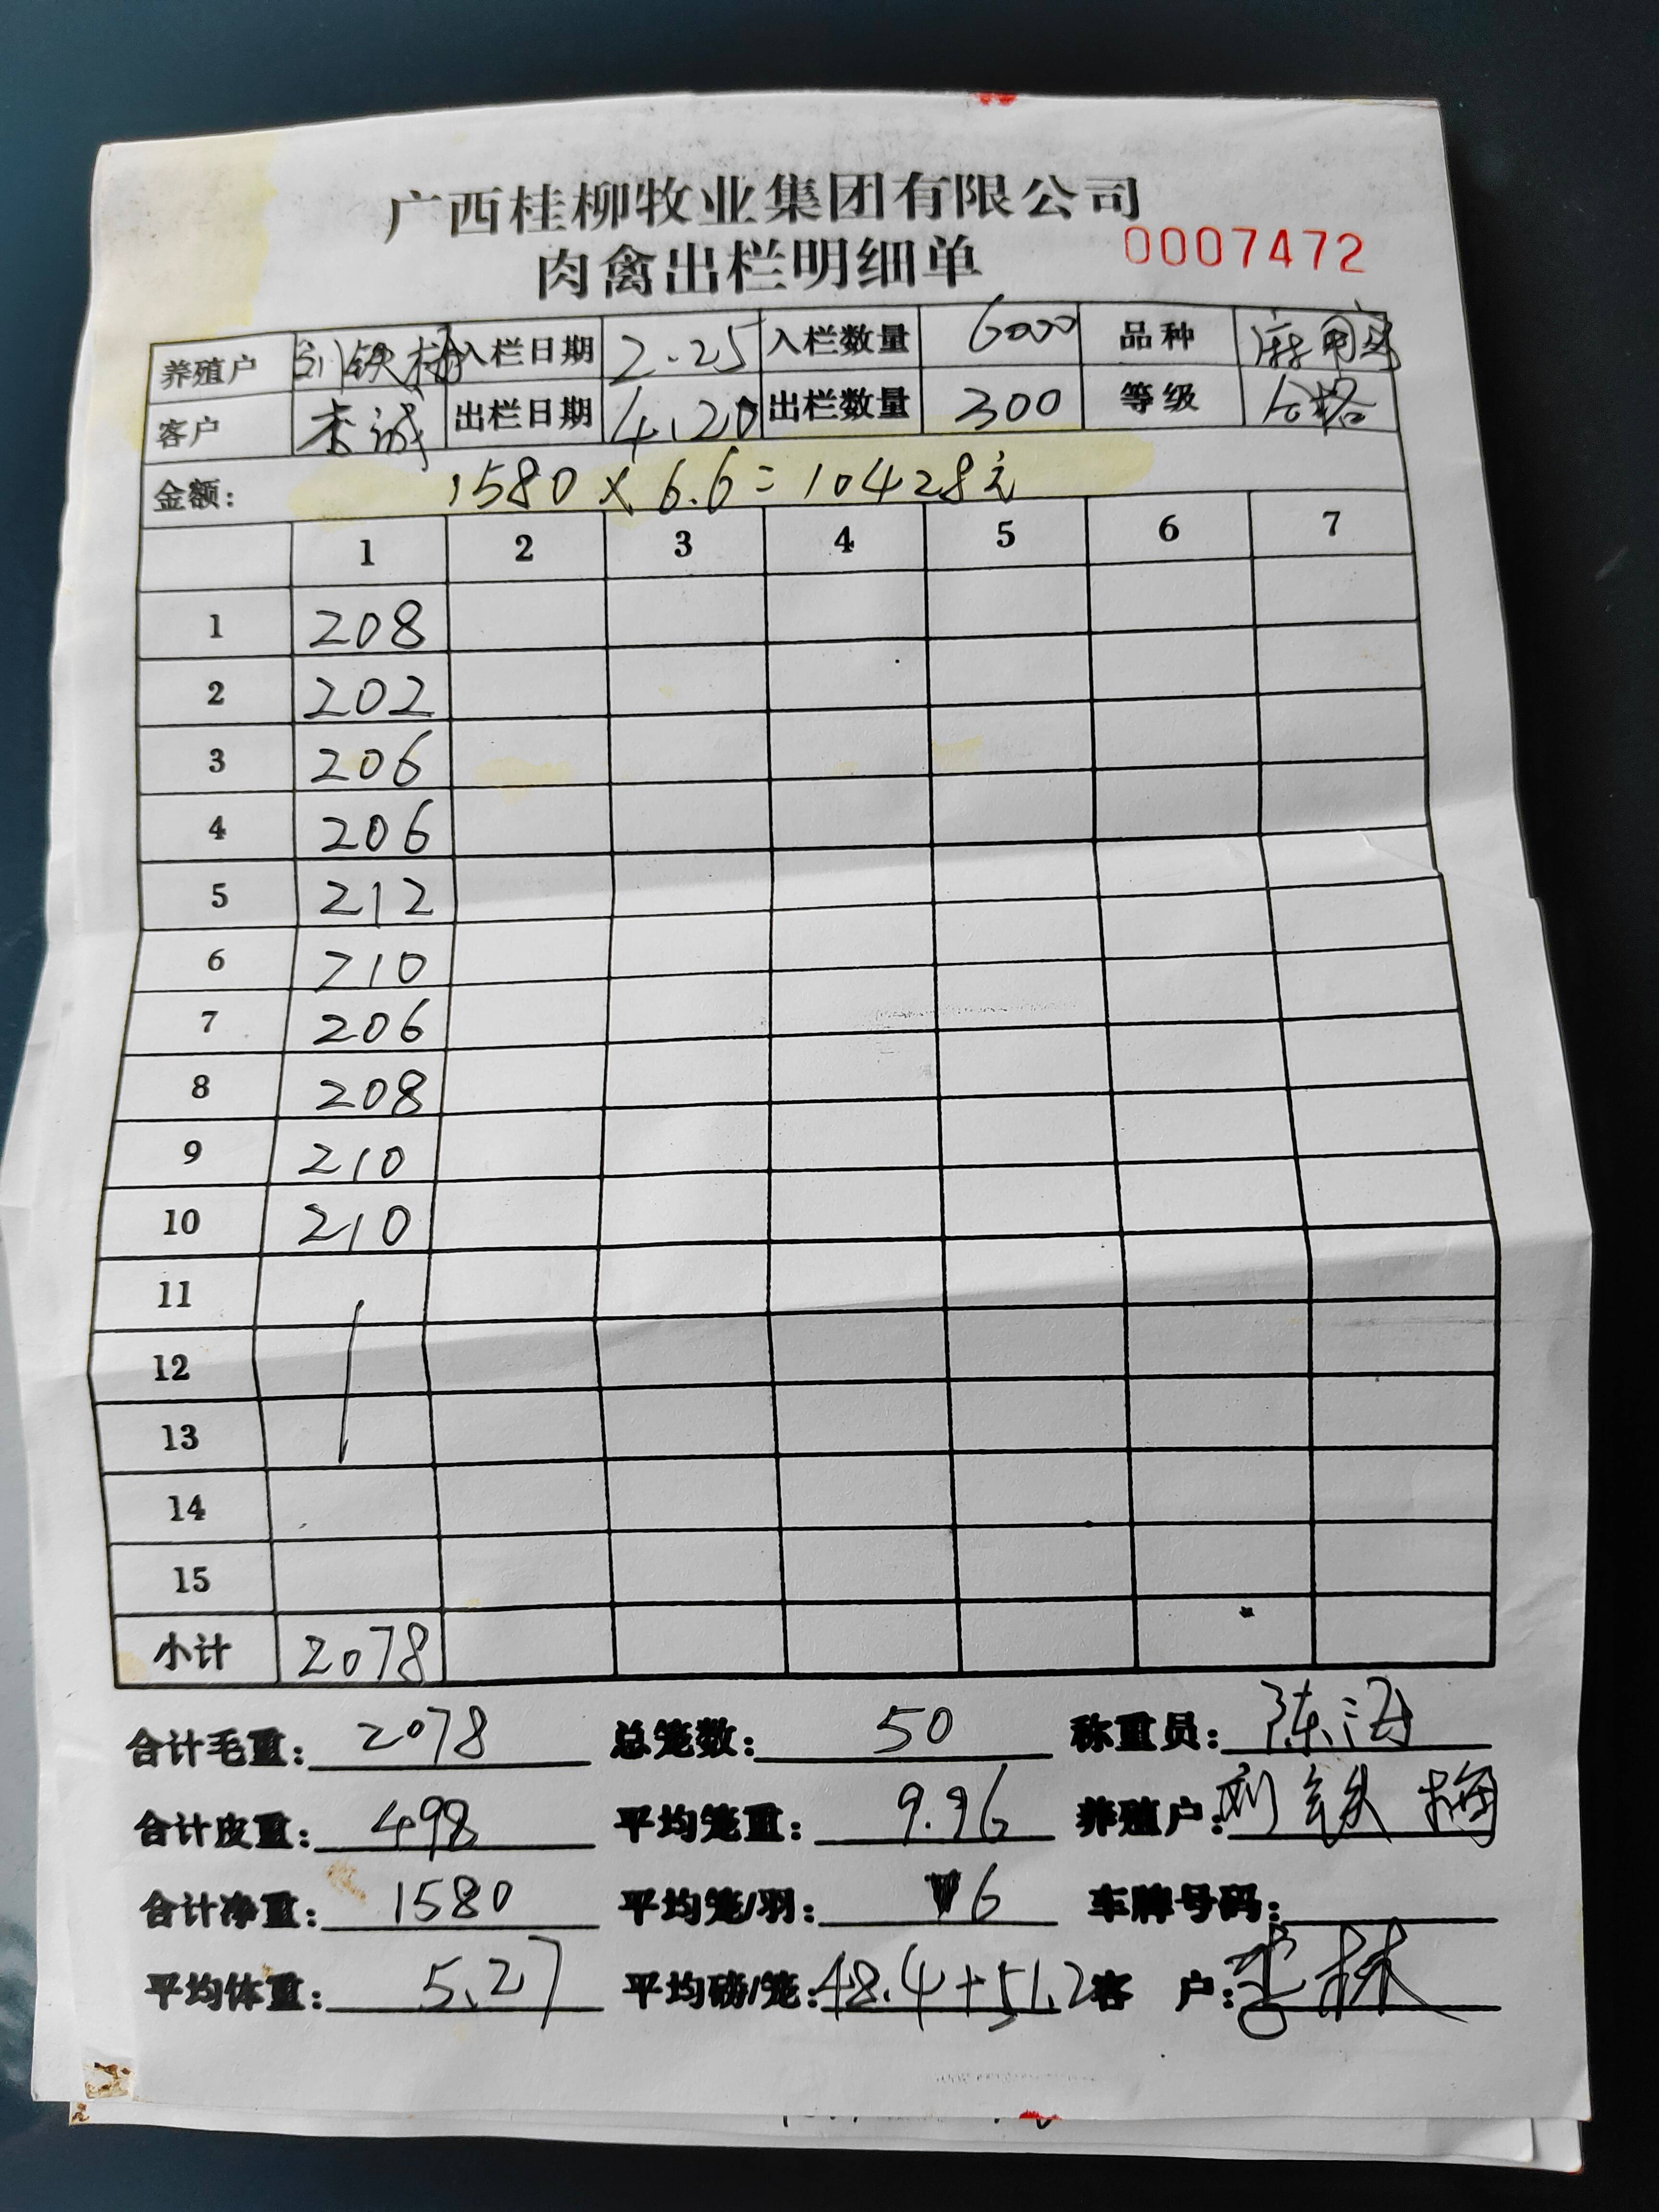 广西桂柳牧业集团有限公司
肉禽出栏明细单 0007472
养殖户 刘铁梅 入栏日期 2.25 入栏数量 6000 品种
客户 李诚 出栏日期 4.20 出栏数量 300 等级 合格
金额: 1580×6.6=10428元
1 2 3 4 5 6 7
1 208
2 202
3 206
4 206
5 212
6 210
7 206
8 208
9 210
10 210
11
12
13
14
15
小计 2078
合计毛重: 2078 总笼数: 50 称重员: 陈海
合计皮重: 498 平均笼重: 9.96 养殖户: 刘铁梅
合计净重: 1580 平均笼/羽: 6 车牌号码:
平均体重: 5.27 平均磅/笼: 48.4+51.2 客 户: